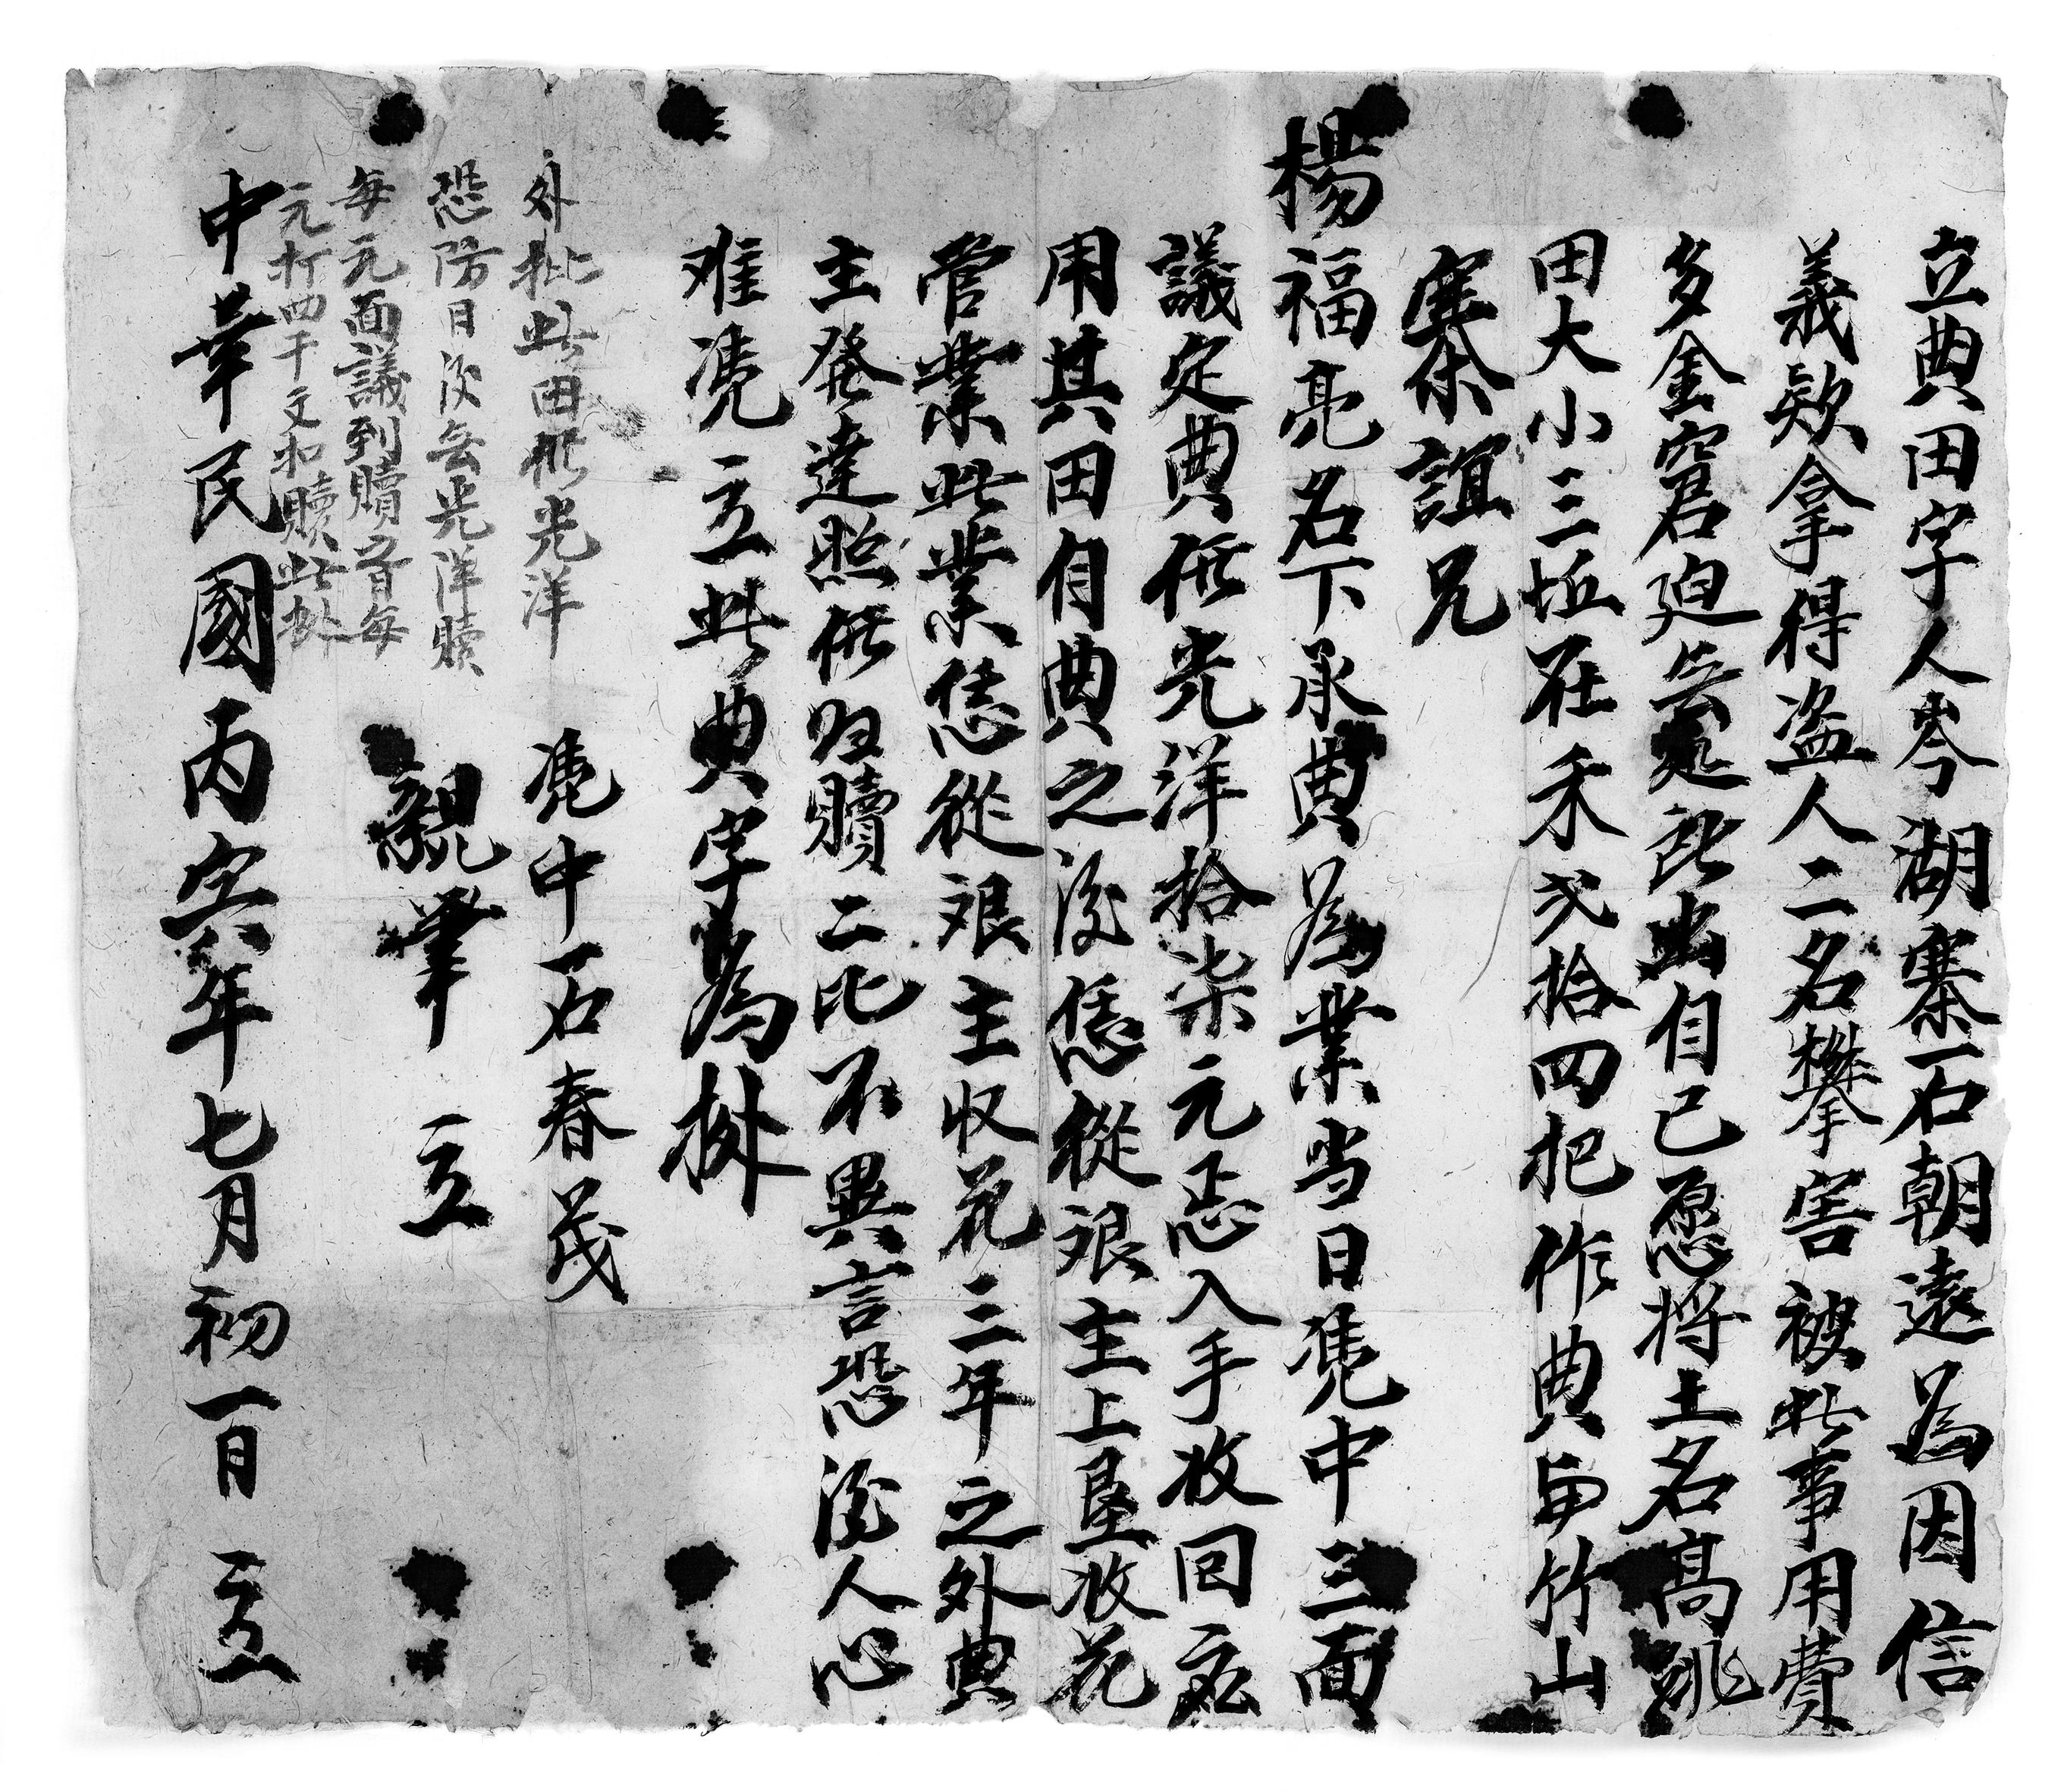 立典田字人岑湖寨石朝遠為因信
義欵拿得盗人二名攀害被此事用費
多金窘廹無処設出自己愿将土名高跳
田大小三坵在禾弍拾四把作典与竹山
寨誼兄
楊福亮名下承典為業当日凴中三面
議定典価光洋拾柒元㤀入手收回应
用其田自典之後恁從銀主上垦收花
管業此業恁從銀主收花三年之外典
主發達照価归贖二比不異言恐後人心
难凴立此典字為㨿
外批此田価光洋
恐防日後無光洋贖
每元面議到贖者每
元打四千文扣贖此㨿
凴中石春茂
親筆 立
中華民國丙字年七月初一日 立